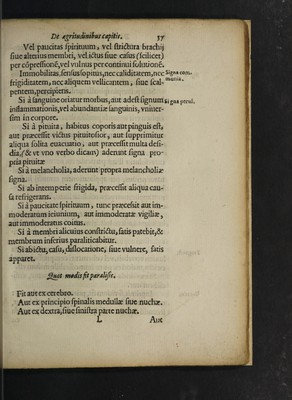 De ægritudinibus capitis. 37
Vel paucitas spirituum, vel strictura brachij
siue alterius membri, vel ictus siue casus (scilicet)
per cõpressionē, vel vulnus per continui solutionē.
Immobilitas, sensus sopitus, nec caliditatem, nec
frigiditatem, nec aliquem vellicantem, siue scal-
pentem, percipiens.
Signa com-
munia.
Si à sanguine oriatur morbus, aut adest signum
inflammationis, vel abundantiæ sanguinis, vniuer-
sim in corpore.
Signa prop.
Si à pituita, habitus coporis aut pinguis est,
aut præcessit victus pituitosior, aut supprimitur
aliqua solita euacuatio, aut præcessit multa desi-
dia, (& vt vno verbo dicam) aderunt signa pro-
pria pituitæ
Si à melancholia, aderunt propria melancholiæ
signa.
Si ab intemperie frigida, præcessit aliqua cau-
sa refrigerans.
Si à paucitate spirituum, tunc præcessit aut im-
moderatum ieiunium, aut immoderatæ vigiliæ,
aut immoderatus coitus.
Si à membri alicuius constrictu, satis patebit, &
membrum inferius paraliticabitur.
Si ab ictu, casu, dislocatione, siue vulnere, satis
apparet.
Quot modis fit paralisis.
Fit aut ex cerebro.
Aut ex principio spinalis medullæ siue nuchæ.
Aut ex dextra, siue sinistra parte nuchæ.
L Aut